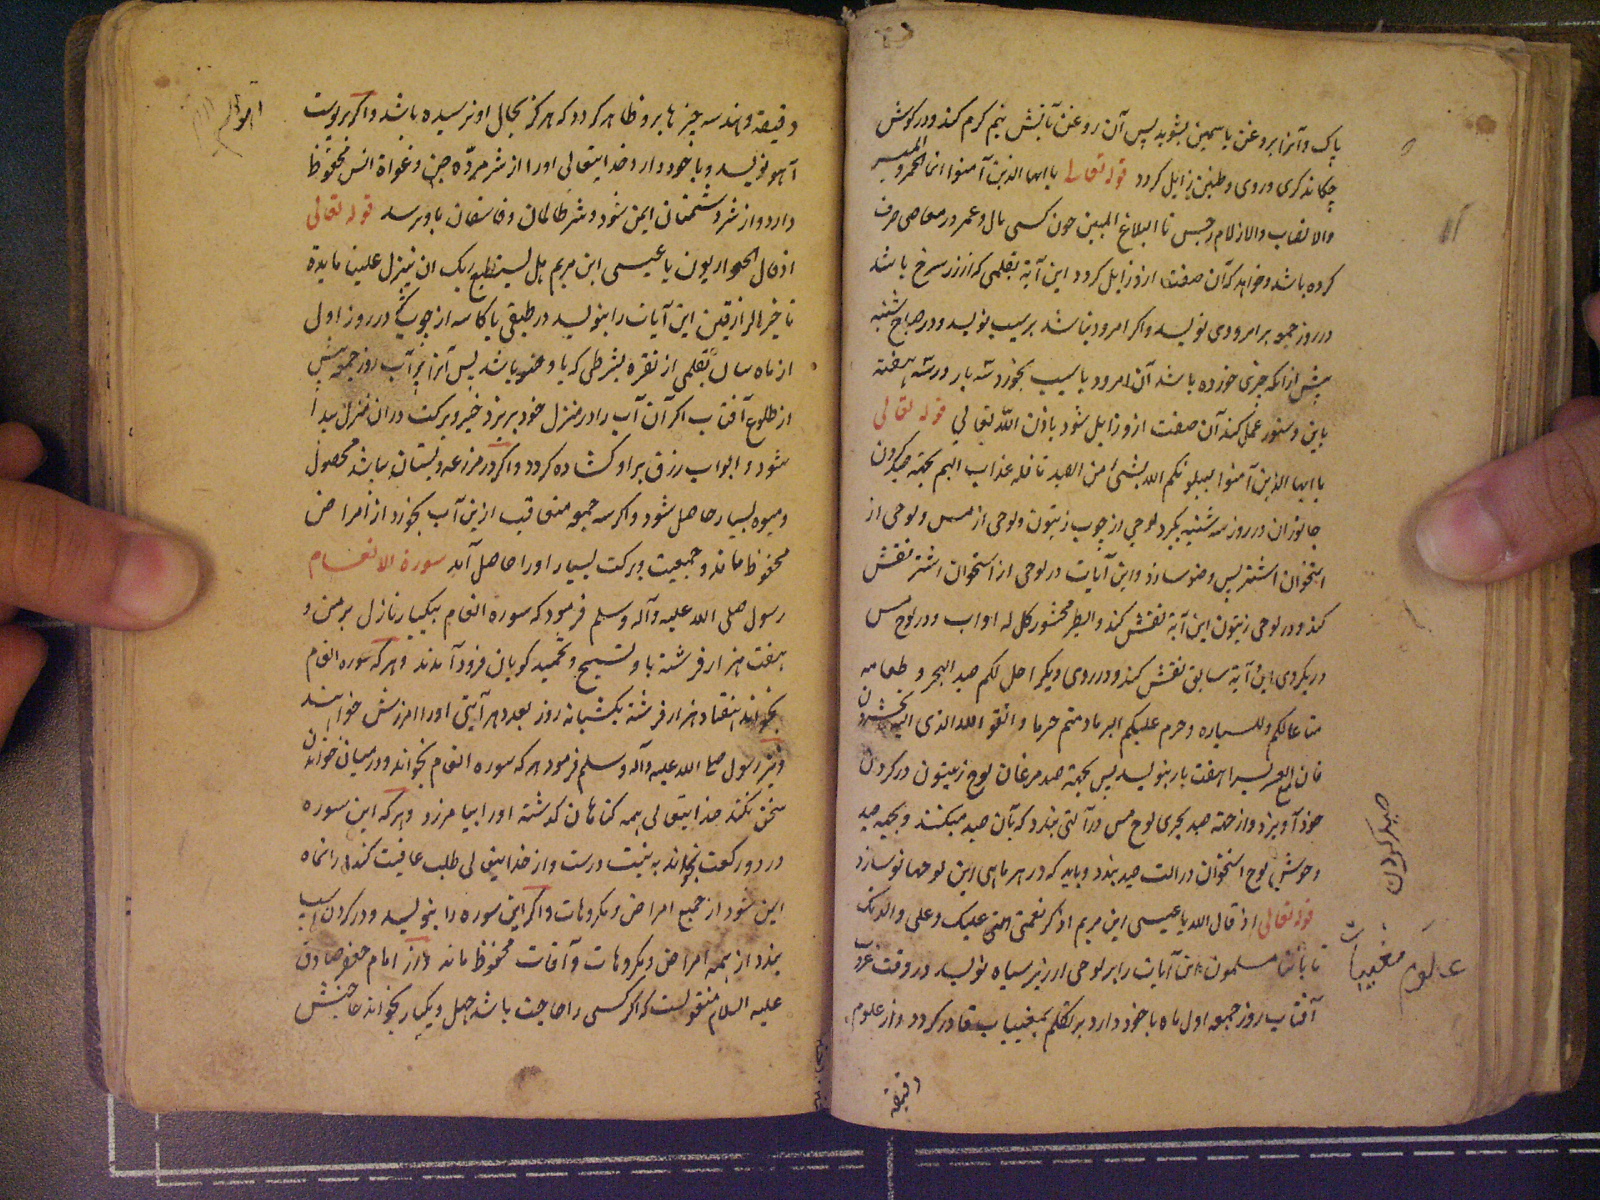 پاک و آنرا بروغن یاسمین بشوید پس آن روغن بآتش نیم گرم کند و در گوش
چکاند کری و دوی و طنین زایل کردد قوله تعالی یا ایها الذین آمنوا انما الخمر و المیسر
والانصاب والازلام رجس تا البلاغ المبین چون کسی مال و عمر در معاصی صرف
کرده باشد و خواهد که آن صفت ازو زایل کردد این آیة بقلمی که از زر سرخ باشد
در روز جمعه بر امرودی نویسد و اکر امرود نباشد بر سیب نویسد و در صباح شنبه
پیش از آنکه چیزی خورده باشد آن امرود یا سیب بخورد سه بار در سه هفته
باین دستور عمل کند آن صفت ازو زایل شود باذن الله تعالی قوله تعالی
یا ایها الذین آمنوا لیبلونکم الله بشیء من الصید تا فله عذاب الیم بجهة صید کردن
جانوران در روز سه شنبه بگیرد لوحی از چوب زیتون و لوحی از مس و لوحی از
استخوان اشتر پس وضو سازد و این آیات در لوحی از استخوان اشتر نقش
کند و در لوحی زیتون این آیة نقش کند والطیر محشورة کل له اواب و در لوح مس
در یکروی این آیة سابق نقش کند و در روی دیگر احل لکم صید البحر و طعامه
متاعا لکم وللسیاره و حرم علیکم البر مادمتم حرما و اتقو الله الذی الیه تحشرون
فان مع العسر یسرا هفت بار بنویسد پس بجهة صید مرغان لوح زیتون در کردن
خود آویزد و از جهة صید بحری لوح مس در آلتی بندد که بآن صید میکنند و بجهة صید
وحوش لوح استخوان در الت صید بندد و باید که در هر ماهی این لوحها نو سازد
قوله تعالی اذ قال الله یا عیسی ابن مریم اذکر نعمتی التی علیک و علی والدتک
تا باننا مسلمون این آیات را بر لوحی از زیر سیاه نویسد در وقت غروب
آفتاب روز جمعه اول ماه با خود دارد بر تکلم بمغیبات قادر کردد و از علوم
دقیقه
صید کردن
علوم مغیبات
دقیقه و هندسه چیزها برو ظاهر کردد که هرکز بحال او نرسیده باشد و اکر بر پوست
آهو نویسد و با خود دارد خدایتعالی او را از شر مردهٔ جن و غواة انس محفوظ
دارد و از شر دشمنان ایمن شود و شر ظالمان و فاسقان باو نرسد قوله تعالی
اذ قال الحواریون یا عیسی ابن مریم هل یستطیع ربک ان ینزل علینا مایدة
تا خیر الرازقین این آیات را بنویسد در طبقی یا کاسه از چوب در روز اول
از ماه بقلمی از نقره بشرطی که با وضو باشد پس آنرا پر آب روز جمعه پیش
از طلوع آفتاب اکر آن آب را در منزل خود بریزد خیر و برکت در ان منزل پیدا
شود و ابواب رزق بر او کشاده کردد و اکر در مزرعه و بستان بپاشد محصول
و میوه بسیار حاصل شود و اکر سه جمعه متعاقب ازین آب بخورد از امراض
محفوظ ماند و جمعیت و برکت بسیار او را حاصل آید سورة الانعام
رسول صلی الله علیه وآله وسلم فرمود که سوره انعام بیکبار نازل بر من و
هفت هزار فرشته با و تسبیح و تحمید کویان فرود آمدند و هر که سوره انعام
بخواند هفتاد هزار فرشته یکشبانه روز بعدد هر آیتی او را امرزش خواهند
و نیز رسول صلی الله علیه وآله وسلم فرمود هر که سوره انعام بخواند و در میان خواندن
سخن نکند خدایتعالی همه کناهان کذشته او را بیامرزد و هر که این سوره
در دو رکعت بخواند به نیت درست و از خدایتعالی طلب عافیت کند
ایمن شود از جمیع امراض و مکروهات و اکر این سوره را بنویسد و در کردن اسب
بندد از همه امراض و مکروهات و آفات محفوظ ماند و از امام جعفر صادق
علیه السلام منقولست که اکر کسی را حاجت باشد چهل و یکبار بخواند حاجتش